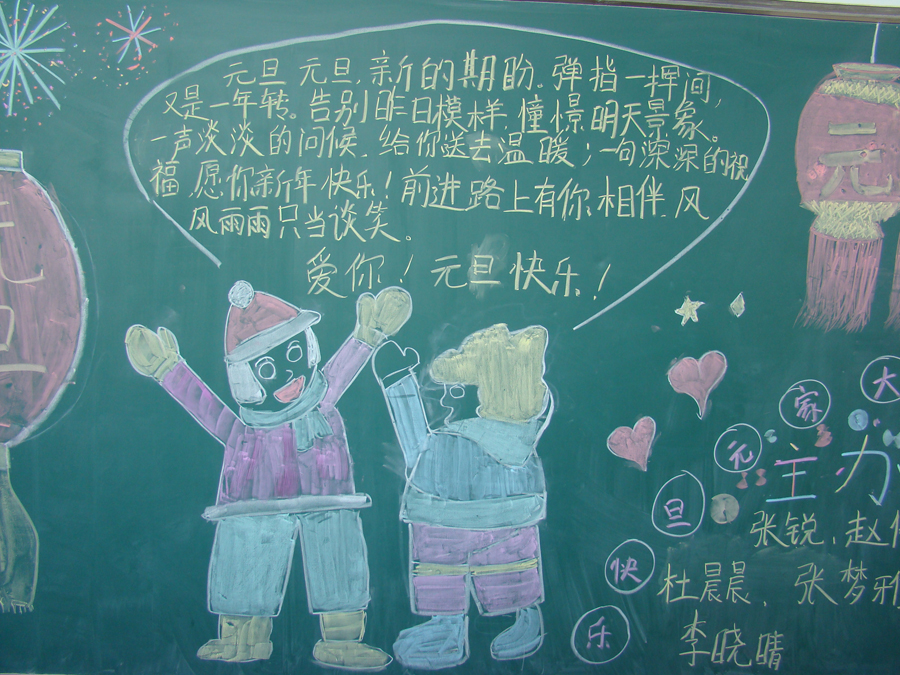 元旦元旦,新的期盼。弹指一挥间,
又是一年转。告别昨日模样,憧憬明天景象。
一声淡淡的问候,给你送去温暖;一句深深的祝
福,愿你新年快乐!前进路上有你相伴,风
风雨雨只当谈笑。
爱你!元旦快乐!
元旦
元旦
大家元旦快乐
主办
张锐、赵
杜晨晨、张梦雅
李晓晴